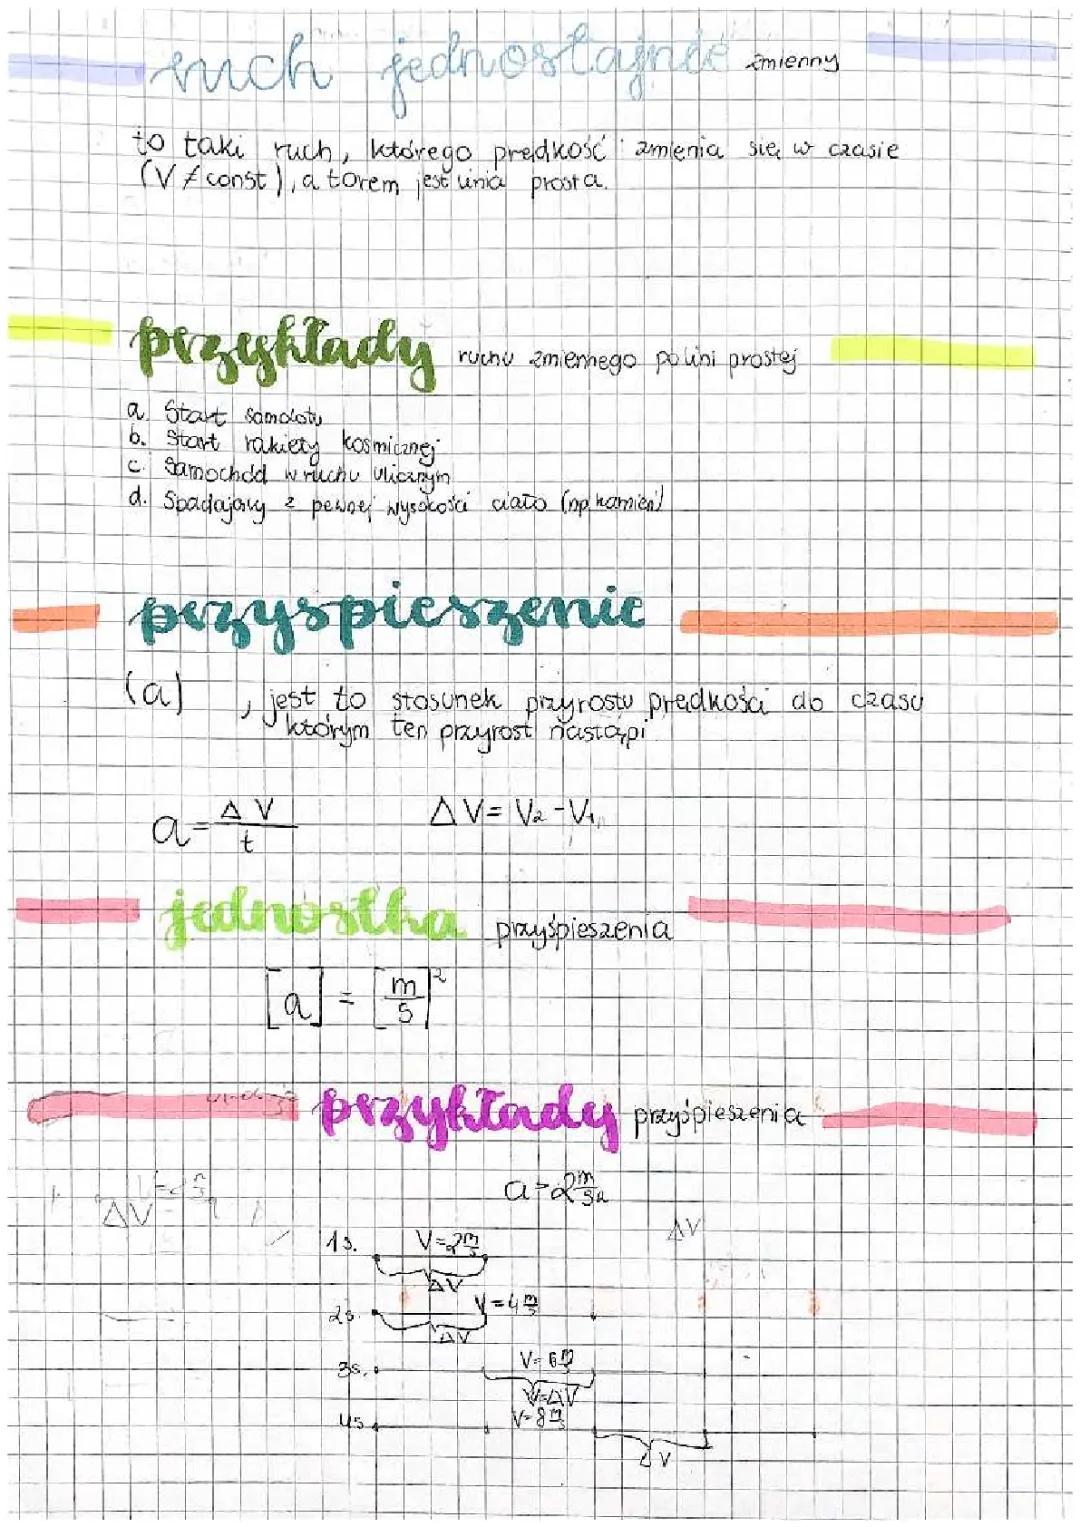 ruch jednostajnie zmienny
to taki ruch, którego prędkość zmienia się w czasie
(V ≠ const), a torem jest linia prosta.
przykłady ruchu zmiennego po lini prostej
a. Start samolotu
b. Start rakiety kosmicznej
c. Samochód w ruchu ulicznym
d. Spadający z pewnej wysokości ciało (np. kamień)
przyspieszenie
(a) , jest to stosunek przyrostu prędkości do czasu
którym ten przyrost nastąpi
a = ΔV / t ΔV = V₂ - V₁
jednostka przyśpieszenia
[a] = [m/s]²
przykłady przyśpieszenia
a = 2 m/s²
ΔV
ΔV
1s. V=2 m/s
ΔV
2s. V=4 m/s
ΔV
3s. V=6 m/s
V=ΔV
4s V=8 m/s
ΔV